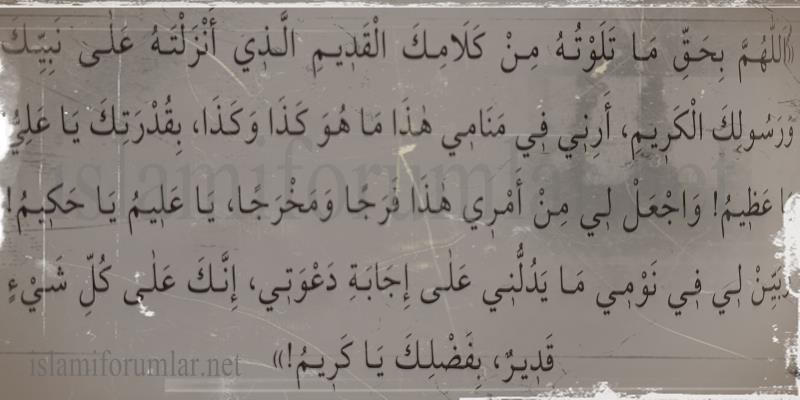 «اَللّٰهُمَّ بِحَقِّ مَا تَلَوْتُهُ مِنْ كَلَامِكَ الْقَدِيمِ الَّذِي أَنْزَلْتَهُ عَلٰى نَبِيِّكَ
وَرَسُولِكَ الْكَرِيمِ، أَرِنِي فِي مَنَامِي هٰذَا مَا هُوَ كَذَا وَكَذَا، بِقُدْرَتِكَ يَا عَلِيُّ
يَا عَظِيمُ! وَاجْعَلْ لِي مِنْ أَمْرِي هٰذَا فَرَجًا وَمَخْرَجًا، يَا عَلِيمُ يَا حَكِيمُ!
وَبَيِّنْ لِي فِي نَوْمِي مَا يَدُلُّنِي عَلٰى إِجَابَةِ دَعْوَتِي، إِنَّكَ عَلٰى كُلِّ شَيْءٍ
قَدِيرٌ، بِفَضْلِكَ يَا كَرِيمُ!»
islamiforumlar.net
islamiforumlar.net